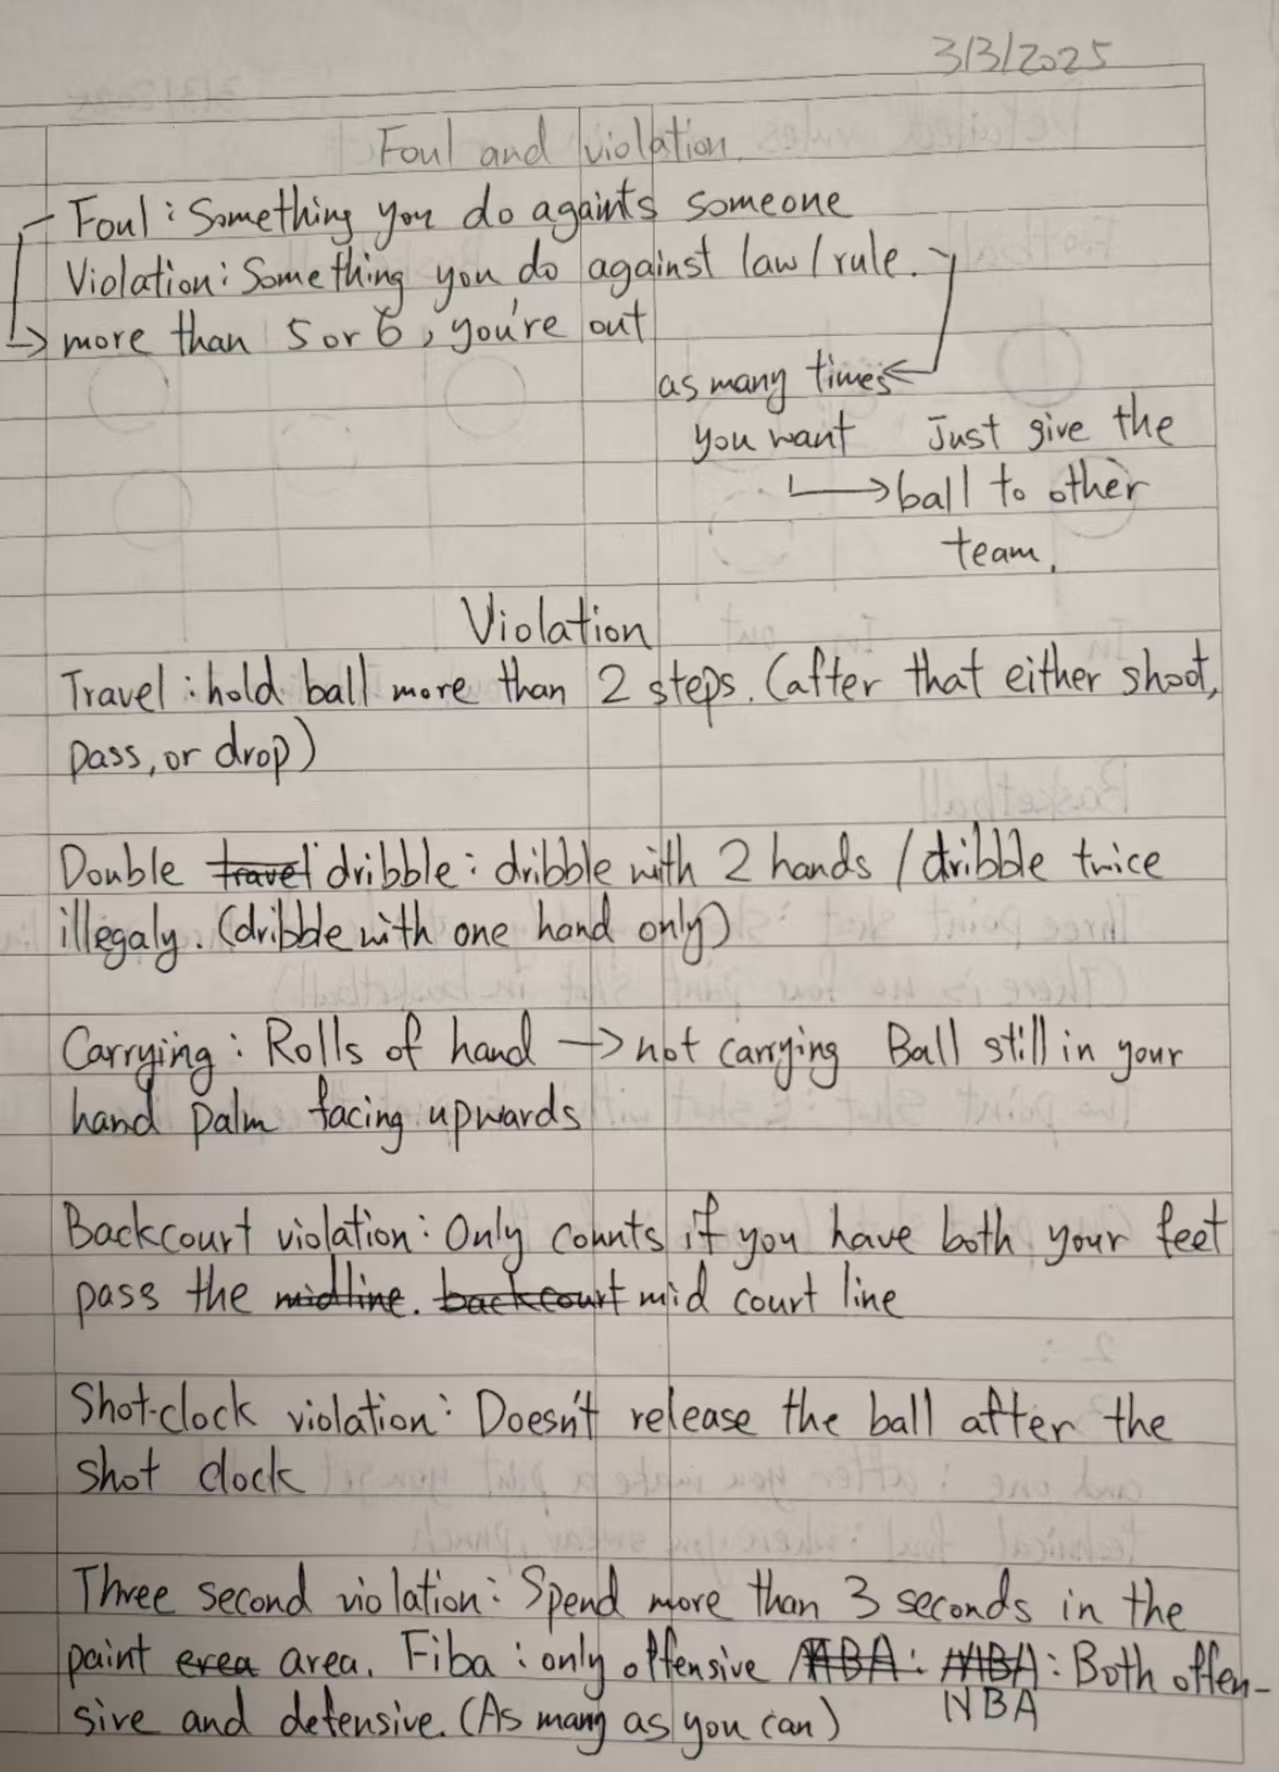 3/3/2025
Foul and violation.
Foul : Something you do againts someone
Violation : Something you do against law / rule.
→ more than 5 or 6, you're out
as many times ←
you want Just give the
→ ball to other
team.
Violation
Travel : hold ball more than 2 steps. (after that either shoot,
pass, or drop)
Double travel dribble : dribble with 2 hands / dribble twice
illegaly. (dribble with one hand only)
Carrying : Rolls of hand → not carrying Ball still in your
hand palm facing upwards
Backcourt violation : Only counts if you have both your feet
pass the midline. backcourt mid court line
Shot-clock violation : Doesn't release the ball after the
shot clock
Three second violation : Spend more than 3 seconds in the
paint erea area. Fiba : only offensive / NBA : NBA : Both offen-
sive and defensive. (As many as you can) NBA